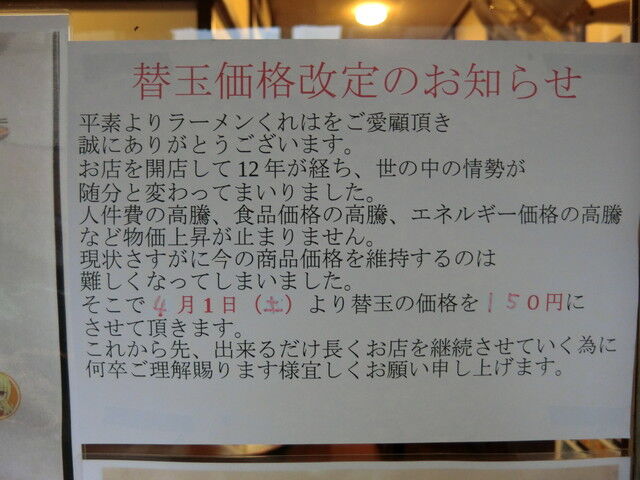 替玉価格改定のお知らせ
平素よりラーメンくれはをご愛顧頂き
誠にありがとうございます。
お店を開店して12年が経ち、世の中の情勢が
随分と変わってまいりました。
人件費の高騰、食品価格の高騰、エネルギー価格の高騰
など物価上昇が止まりません。
現状さすがに今の商品価格を維持するのは
難しくなってしまいました。
そこで4月1日（土）より替玉の価格を150円に
させて頂きます。
これから先、出来るだけ長くお店を継続させていく為に
何卒ご理解賜ります様宜しくお願い申し上げます。